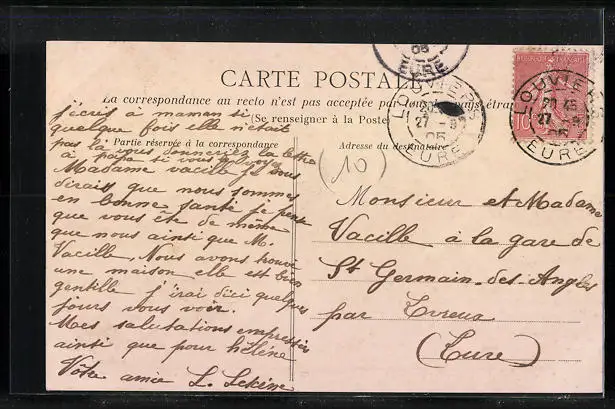 05
EURE
CARTE POSTALE
La correspondance au recto n'est pas acceptée par tous pays étran
(Se renseigner à la Poste)
Partie réservée à la correspondance
Adresse du destinataire
LOUVIERS
20
27 - 9
05
EURE
LOUVIERS
20 45
27 - 9
05
EURE
10
(10)
j'écris à maman si
quelque fois elle n'était
pas là vous donnerez la lettre
à papa si vous le voyez
Madame Vacille je vous
dirais que nous sommes
en bonne santé je pense
que vous ête de même
que nous ainsi que M.
Vacille. Nous avons trouvé
une maison elle est bien
gentille j'irai d'ici quelques
jours vous voir.
Mes salutations empressées
ainsi que pour hélène
Votre amie L.
Monsieur et Madame
Vacille à la gare de
St Germain-des-Angles
par Evreux
(Eure)